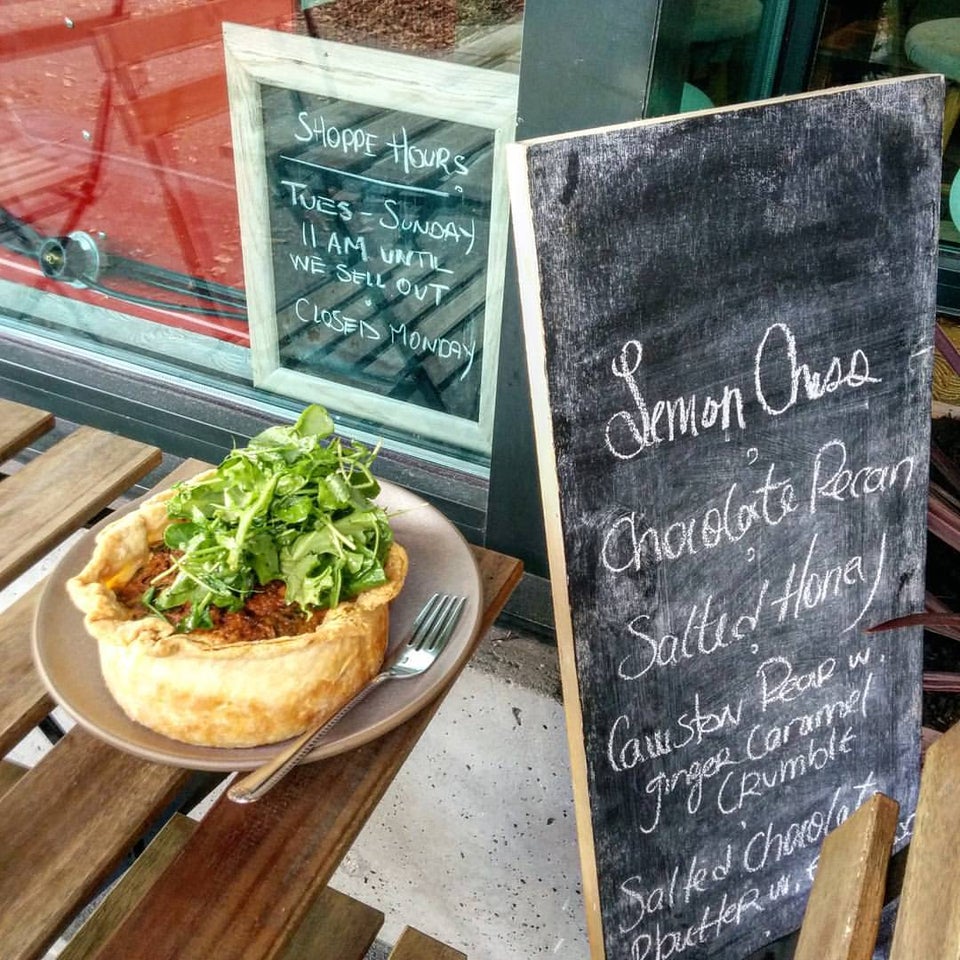 SHOPPE HOURS
TUES - SUNDAY
11 AM UNTIL
WE SELL OUT
CLOSED MONDAY
Lemon Chess
Chocolate Pecan
Salted Honey
Cawston Pear w.
ginger caramel
crumble
Salted Chocolate
Pbutter w.